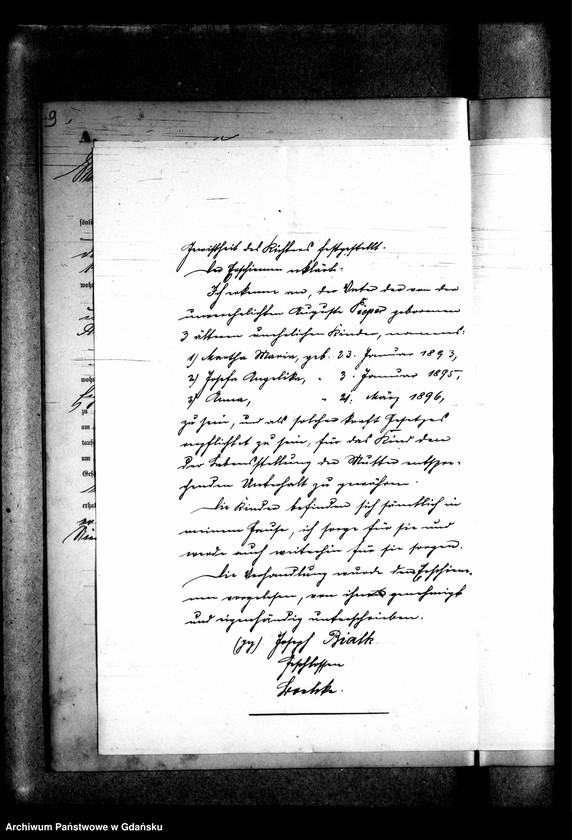 9
A.
Gewißheit des Richters festgestellt.
Der Erschienene erklärt:
Ich erkenne an, der Vater der von der
unverehelichten Auguste Pieper geborenen
3 älteren unehelichen Kinder, namens:
1) Martha Maria, geb. 23. Januar 1893,
2) Josefa Angelika, " 3. Januar 1895,
3) Anna, " 21. März 1896,
zu sein, und als solcher kraft Gesetzes
verpflichtet zu sein, für das Kind dem
der Lebensstellung der Mutter entspre-
chenden Unterhalt zu gewähren.
Die Kinder befinden sich sämtlich in
meinem Hause, ich sorge für sie und
werde auch weiterhin für sie sorgen.
Die Verhandlung wurde dem Erschiene-
nen vorgelesen, von ihm genehmigt
und eigenhändig unterschrieben.
(gz) Joseph Bialk
Geschlossen
Archiwum Państwowe w Gdańsku